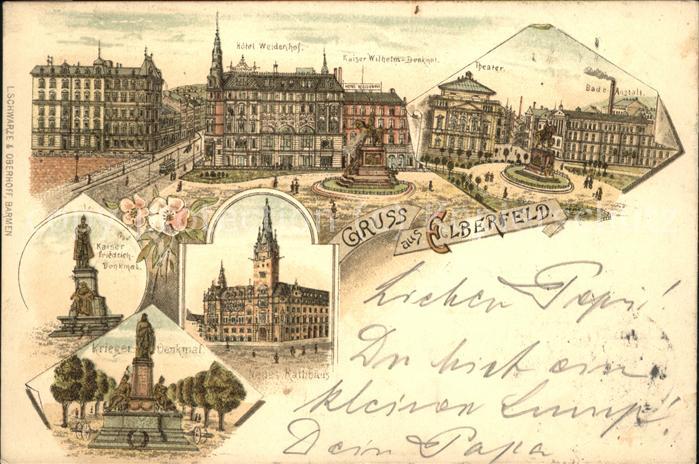 Hôtel Weidenhof.
Kaiser Wilhelm-Denkmal.
Theater.
Bade-Anstalt.
L. SCHWARZE & OBERHOFF, BARMEN
Kaiser
Friedrich-
Denkmal.
GRUSS
aus ELBERFELD.
Neues Rathhaus
Krieger Denkmal.
Lieber Papi!
Du bist ein
kleiner Lump!
Dein Papa